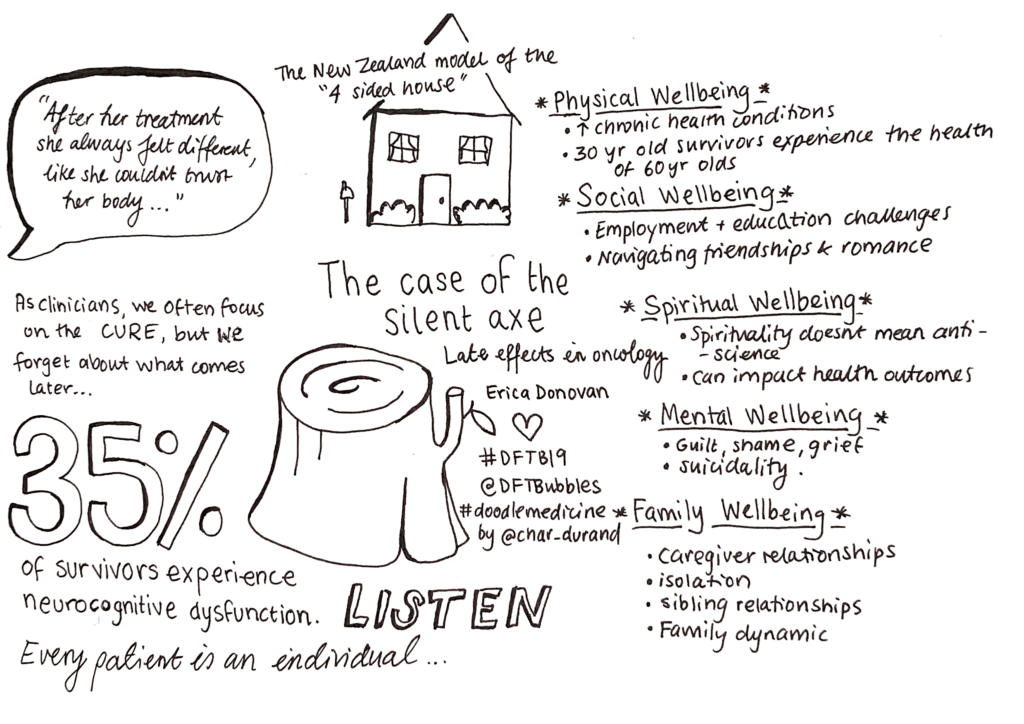 "After her treatment
she always felt different,
like she couldn't trust
her body ..."
The New Zealand model of the
"4 sided house"
* Physical Wellbeing *
• ↑ chronic health conditions
• 30 yr old survivors experience the health
of 60 yr olds
* Social Wellbeing *
• Employment + education challenges
• Navigating friendships & romance
* Spiritual Wellbeing *
• Spirituality doesnt mean anti-
-science
• Can impact health outcomes
* Mental Wellbeing *
• Guilt, shame, grief
• suicidality.
* Family Wellbeing *
• caregiver relationships
• isolation
• sibling relationships
• Family dynamic
The case of the
silent axe
Late effects in oncology
Erica Donovan
#DFTB19
@DFTBubbles
#doodlemedicine
by @char_durand
As clinicians, we often focus
on the CURE, but we
forget about what comes
later...
35%
of survivors experience
neurocognitive dysfunction.
LISTEN
Every patient is an individual ...